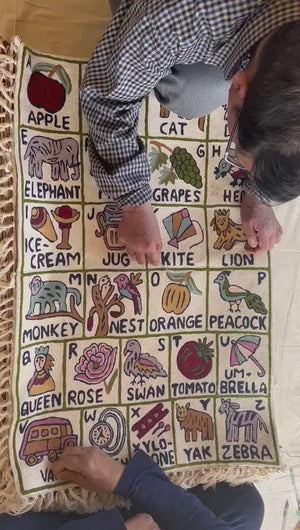 A
APPLE
CAT
E
ELEPHANT
G
GRAPES
H
I
ICE-
CREAM
J
JUG
KITE
LION
M
MONKEY
N
NEST
O
ORANGE
P
PEACOCK
Q
QUEEN
R
ROSE
S
SWAN
T
TOMATO
U
UM-
BRELLA
V
W
X
XYLO-
Y
YAK
Z
ZEBRA